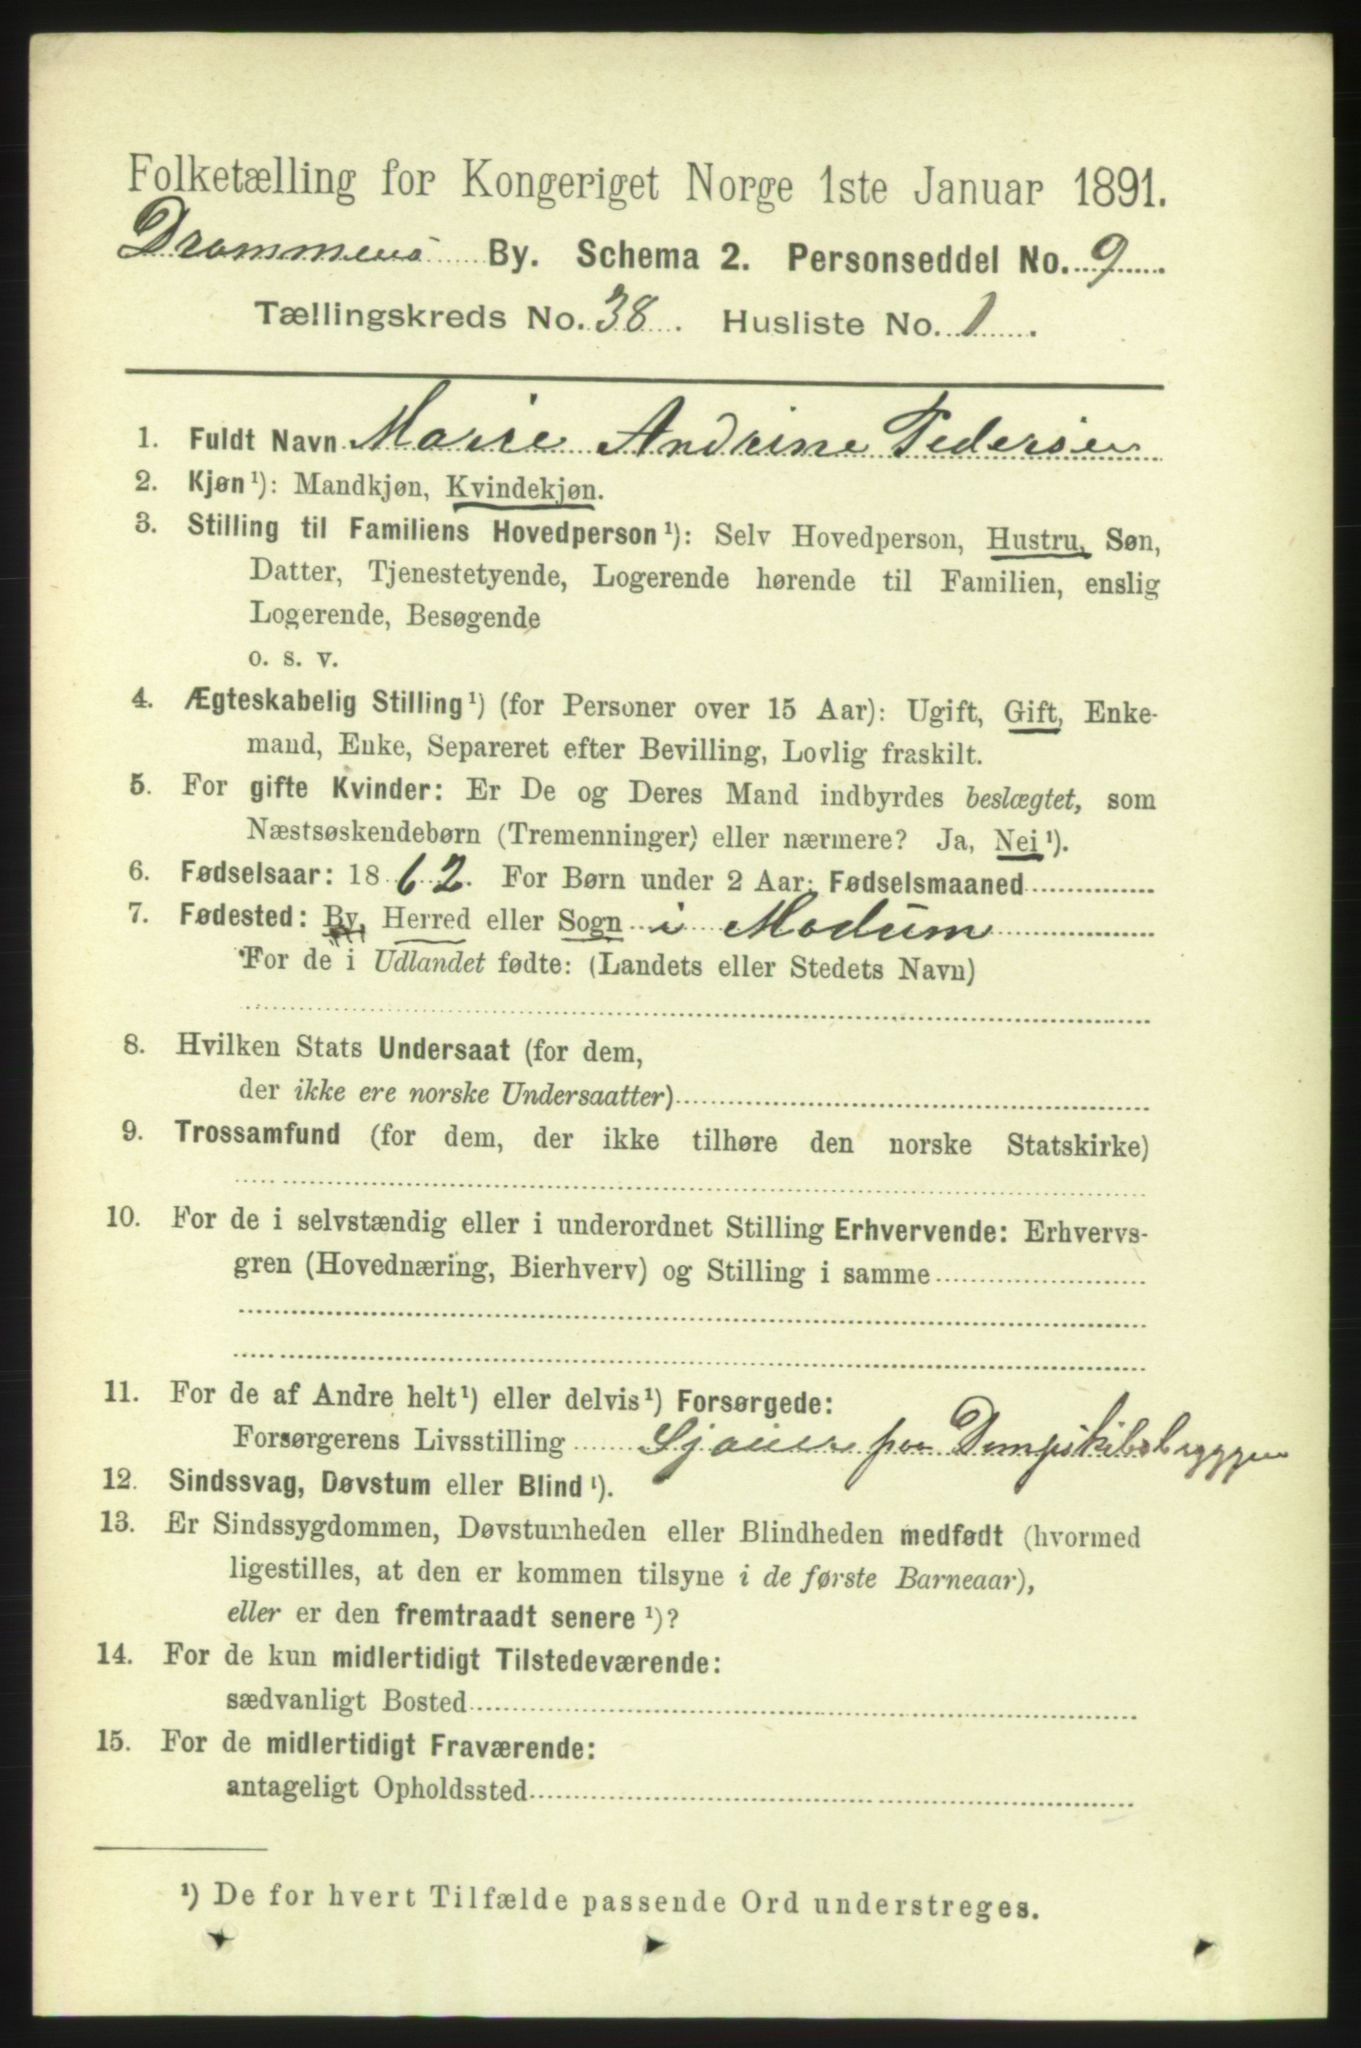 Folketælling for Kongeriget Norge 1ste Januar 1891.
Drammens By. Schema 2. Personseddel No. 9
Tællingskreds No. 38. Husliste No. 1.
1. Fuldt Navn Marie Andrine Pedersen
2. Kjøn¹): Mandkjøn, Kvindekjøn.
3. Stilling til Familiens Hovedperson¹): Selv Hovedperson, Hustru, Søn,
Datter, Tjenestetyende, Logerende hørende til Familien, enslig
Logerende, Besøgende
o. s. v.
4. Ægteskabelig Stilling¹) (for Personer over 15 Aar): Ugift, Gift, Enke-
mand, Enke, Separeret efter Bevilling, Lovlig fraskilt.
5. For gifte Kvinder: Er De og Deres Mand indbyrdes beslægtet, som
Næstsøskendebørn (Tremenninger) eller nærmere? Ja, Nei¹).
6. Fødselsaar: 1862. For Børn under 2 Aar: Fødselsmaaned
7. Fødested: By, Herred eller Sogn i Modum
For de i Udlandet fødte: (Landets eller Stedets Navn)
8. Hvilken Stats Undersaat (for dem,
der ikke ere norske Undersaatter)
9. Trossamfund (for dem, der ikke tilhøre den norske Statskirke)
10. For de i selvstændig eller i underordnet Stilling Erhvervende: Erhvervs-
gren (Hovednæring, Bierhverv) og Stilling i samme
11. For de af Andre helt¹) eller delvis¹) Forsørgede:
Forsørgerens Livsstilling Sjouer paa Dampskibsbryggen
12. Sindssvag, Døvstum eller Blind¹).
13. Er Sindssygdommen, Døvstumheden eller Blindheden medfødt (hvormed
ligestilles, at den er kommen tilsyne i de første Barneaar),
eller er den fremtraadt senere¹)?
14. For de kun midlertidigt Tilstedeværende:
sædvanligt Bosted
15. For de midlertidigt Fraværende:
antageligt Opholdssted
¹) De for hvert Tilfælde passende Ord understreges.